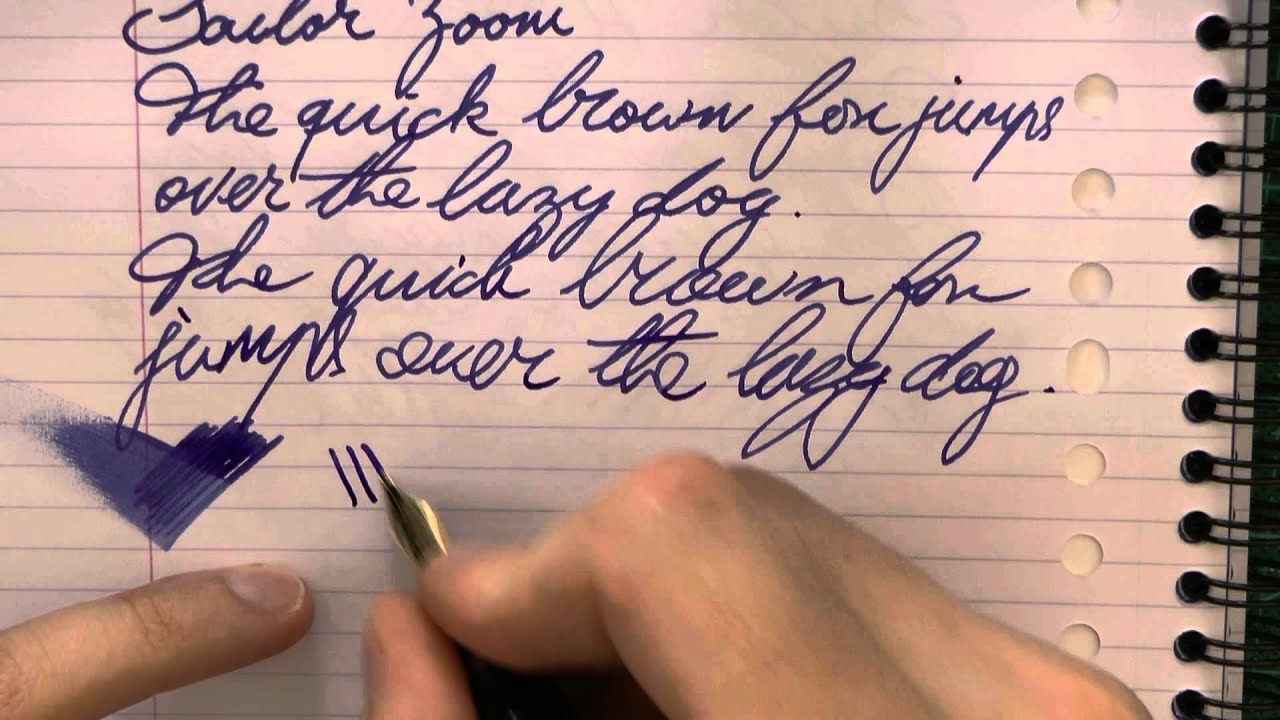 Sailor Zoom
The quick brown fox jumps
over the lazy dog.
The quick brown fox
jumps over the lazy dog.